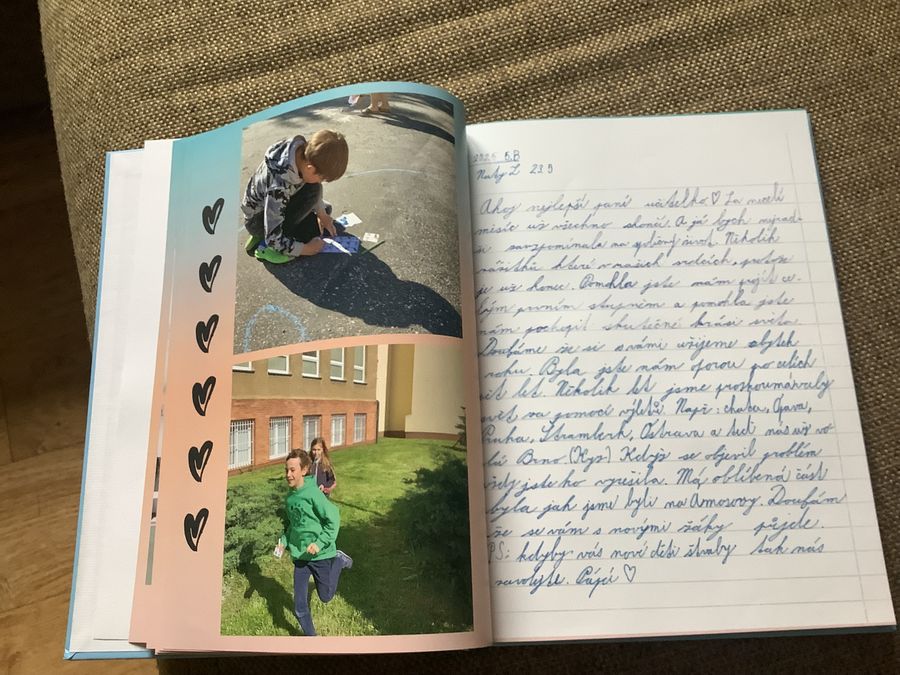 5.B
23.9
Ahoj nejlepší paní učitelko♡ Za necelí
měsíc už všechno skončí. A já bych nejrad-
si zavzpomínala na společný život. Několik
v našich srdcích, protože
je už konec. Pomohla jste nám projít ce-
lým prvním stupněm a pomohla jste
nám pochopit skutečné krási světa.
Doufáme že si s vámi užijeme zbytek
roku. Byla jste nám oporou po celích
pět let. Několik let jsme prozkoumávaly
svět za pomocí výletů. Např: chata, Opava,
Praha, Štramberk, Ostrava a teď nás už vo-
lá Brno (Kyz) Když se objevil problém
vždy jste ho vyřešila. Má oblíbená část
byla jak jsme byli na Amosovy. Doufám
že se vám s novými žáky půjde.
PS: kdyby vás nové děti štvaly tak nás
zavolejte. Pájá ♡